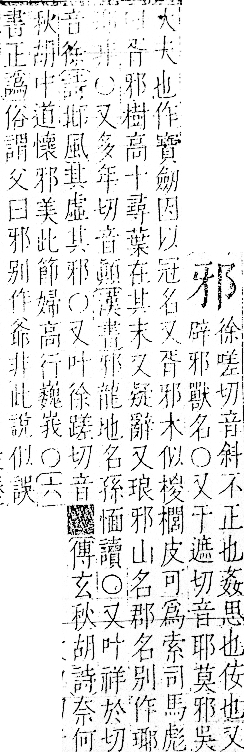 邪
徐嗟切音斜不正也姦思也佞也又
辟邪獸名○又于遮切音耶莫邪吳
大夫也作寶劒因以冠名又胥邪木似椶櫚皮可爲索司馬彪
胥邪樹高十尋葉在其末又疑辭又琅邪山名郡名別作瑯
非○又多年切音顛漢書邪龍地名孫愐讀○又叶祥於切
音徐詩邶風其虛其邪○又叶徐蹉切音傳玄秋胡詩奈何
秋胡中道懷邪美此節婦高行巍峩○六
書正譌俗謂父曰邪別作爺非此說似誤